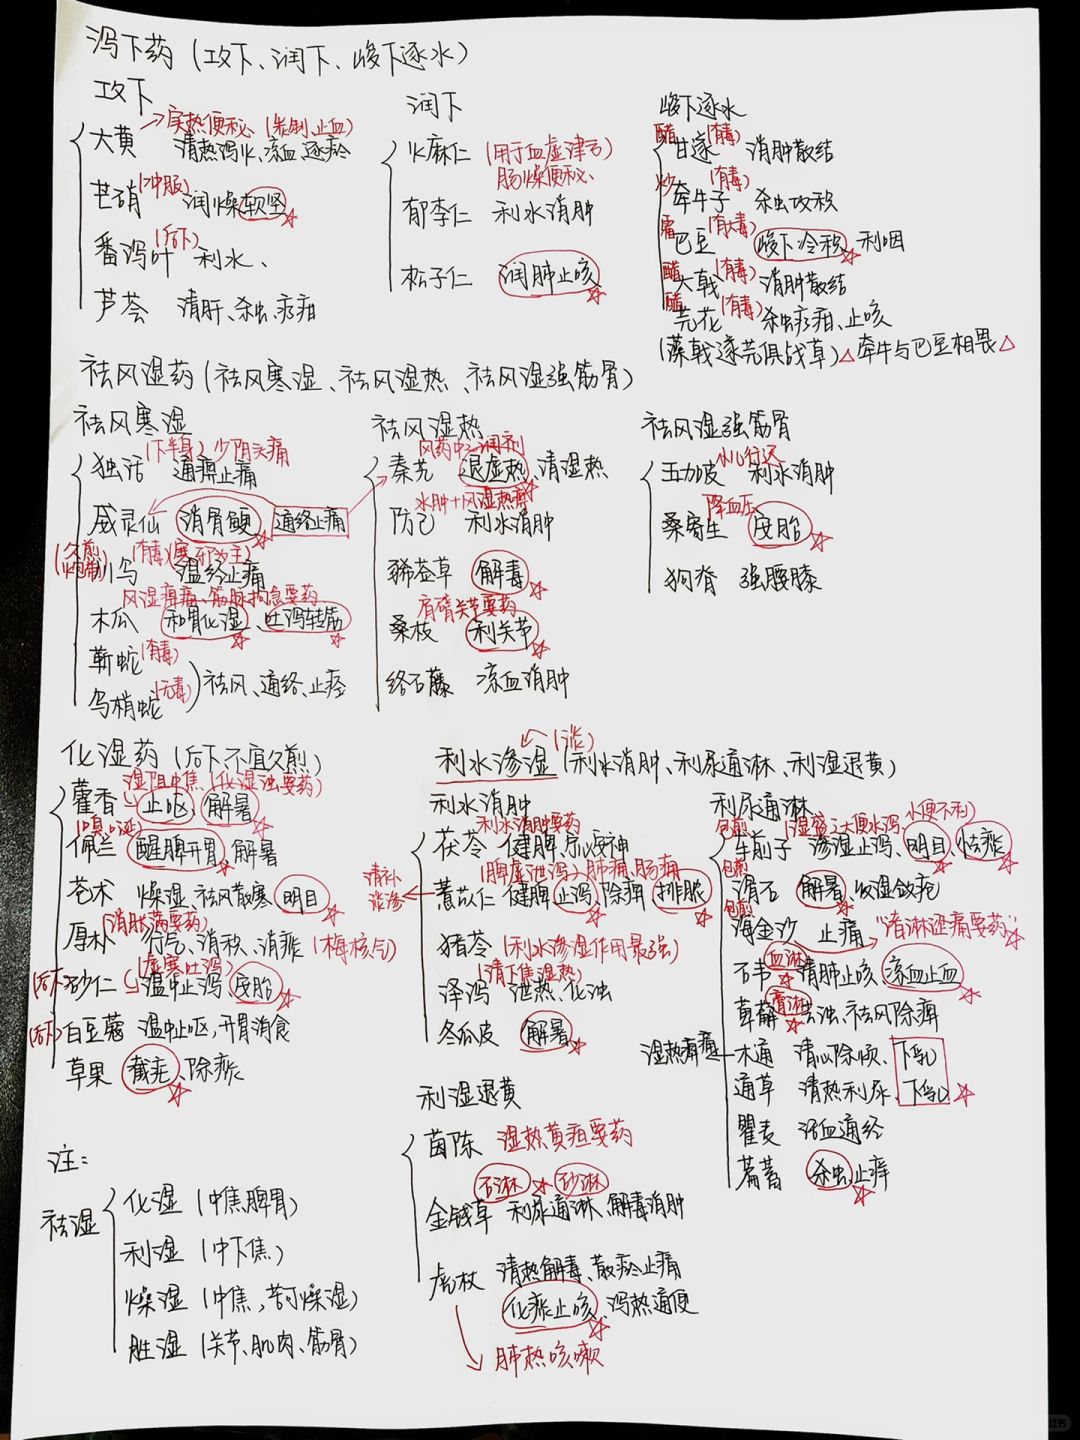 泻下药（攻下、润下、峻下逐水）
攻下
大黄 → 实热便秘、（炭制、止血）
清热泻火、凉血、逐瘀
芒硝（冲服） 润燥软坚☆
番泻叶（后下） 利水、
芦荟 清肝、杀虫、疗疳
润下
火麻仁（用于血虚津亏
肠燥便秘、
郁李仁 利水消肿
松子仁 润肺止咳☆
峻下逐水
醋 甘遂（有毒） 消肿散结
炒 牵牛子（有毒） 杀虫攻积
霜 巴豆（有大毒） 峻下冷积☆、利咽
醋 大戟（有毒） 消肿散结
醋 芫花（有毒） 杀虫疗疳、止咳
（藻戟遂芫俱战草）△ 牵牛与巴豆相畏△
祛风湿药（祛风寒湿、祛风湿热、祛风湿强筋骨）
祛风寒湿
（下半身）少阴头痛
独活 通痹止痛
威灵仙 消骨鲠☆ 通络止痛
（久煎 炮制） （有毒）（寒邪为主）
川乌 温经止痛
风湿痹痛、筋脉拘急要药
木瓜 和胃化湿☆、吐泻转筋☆
蕲蛇（有毒）
乌梢蛇（无毒）
祛风、通络、止痉
祛风湿热
风药中之润剂
秦艽 退虚热☆、清湿热
水肿+风湿热痹
防己 利水消肿
豨莶草 解毒☆
肩臂关节要药
桑枝 利关节☆
络石藤 凉血消肿
祛风湿强筋骨
小儿行迟
五加皮 利水消肿
降血压
桑寄生 安胎☆
狗脊 强腰膝
化湿药（后下、不宜久煎）
湿阻中焦、（化湿浊要药）
藿香 止呕、解暑☆
（口臭、口涎）
佩兰 醒脾开胃、解暑
苍术 燥湿、祛风散寒、明目☆
（消胀满要药）
厚朴 行气、消积、消痰（梅核气）
（虚寒吐泻）
（后下）砂仁 温中止泻、安胎☆
（后下）白豆蔻 温中止呕、开胃消食
草果 截疟☆、除痰
利水渗湿（淡）（利水消肿、利尿通淋、利湿退黄）
利水消肿
利水消肿要药
茯苓 健脾、宁心安神
（脾虚泄泻）肺痈、肠痈
清补淡渗
薏苡仁 健脾止泻☆、除痹、排脓☆
猪苓（利水渗湿作用最强）
（清下焦湿热）
泽泻 泄热、化浊
冬瓜皮 解暑☆
利湿退黄
茵陈 湿热黄疸要药
石淋☆砂淋
金钱草 利尿通淋、解毒消肿
虎杖 清热解毒、散瘀止痛
化痰止咳☆、泻热通便
肺热咳嗽
利尿通淋
包煎 （湿盛之大便水泻、小便不利）
车前子 渗湿止泻、明目☆、怯痰☆
包煎 滑石 解暑☆、收湿敛疮
包煎 海金沙 止痛 “诸淋涩痛要药”☆
石韦 血淋☆ 清肺止咳、凉血止血☆
萆薢 膏淋☆ 去浊、祛风除痹
湿热有痛 — 木通 清心除烦、下乳
通草 清热利尿、下乳☆
瞿麦 活血通经
萹蓄 杀虫☆止痒
注：
祛湿
化湿（中焦脾胃）
利湿（中下焦）
燥湿（中焦，苦可燥湿）
胜湿（关节、肌肉、筋骨）